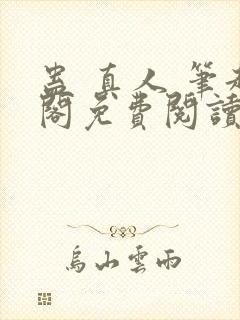 蛊真人 筆趣
閣免費閱讀
烏山雲雨